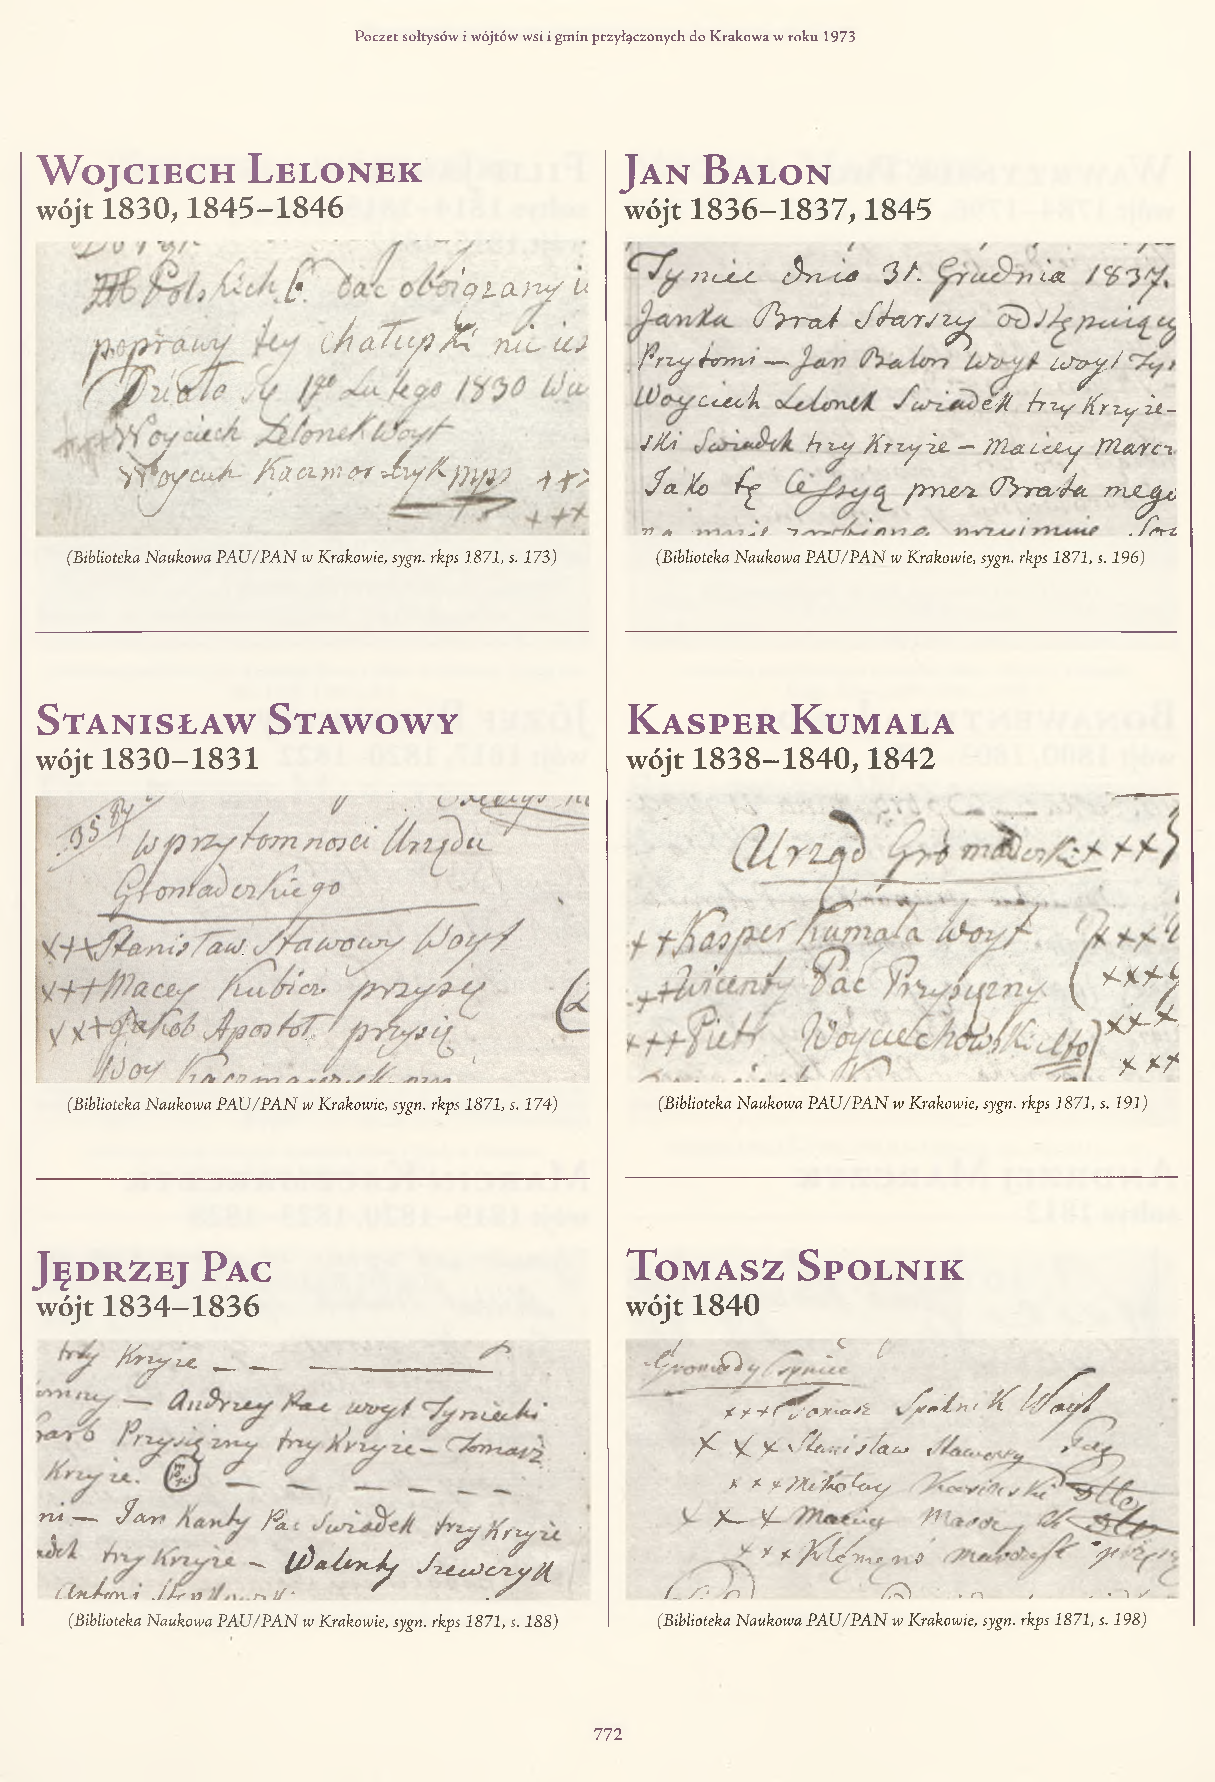 Poczet sołtysów i wójtów wsi i gmin przyłączonych do Krakowa w roku 1973
Wojciech Lelonek
wójt 1830, 1845–1846
Polskich dac oboiązany
poprawy tey chałupki nic
Działo się Lutego 1830
Woyciech Lelonek Woyt
Woyciech Kaczmarczyk mpp +++
+++
(Biblioteka Naukowa PAU/PAN w Krakowie, sygn. rkps 1871, s. 173)
Stanisław Stawowy
wójt 1830–1831
w przytomnosci Urzędu
Gromadzkiego
+++ Stanisław Stawowy Woyt
+++ Macey Kubicz przysię
+++ Jakob Apostoł przysię
Woy Kaczmarczyk
(Biblioteka Naukowa PAU/PAN w Krakowie, sygn. rkps 1871, s. 174)
Jędrzej Pac
wójt 1834–1836
trzy Krzyże — — ———
— Andrzey Pac woyt Tyniecki
Przysiężny trzy Krzyże – Tomasz
Krzyże. — — — — — —
ni — Jan Kanty Pac Swiadek trzy Krzyże
adek trzy Krzyże – Walenty Szewczyk
Antoni
(Biblioteka Naukowa PAU/PAN w Krakowie, sygn. rkps 1871, s. 188)
Jan Balon
wójt 1836–1837, 1845
Tyniec Dnia 31. Grudnia 1837.
Janka Brat Starszy odstępuiący
Przytomi — Jan Balon woyt woyt Ty
Woyciech Lelonek Swiadek trzy Krzyże-
ski Swiadek trzy Krzyże – Maciey Marcz
Jako tę Cessyą przez Brata mego
na mnie zrobioną przyimuie
(Biblioteka Naukowa PAU/PAN w Krakowie, sygn. rkps 1871, s. 196)
Kasper Kumala
wójt 1838–1840, 1842
Urząd Gromadzki +++
++ Kasper Kumala Woyt +++
++ Wicenty Pac Przysiężny +++
+++ Pietr Woyciechowski +++
+++
(Biblioteka Naukowa PAU/PAN w Krakowie, sygn. rkps 1871, s. 191)
Tomasz Spolnik
wójt 1840
Gromady Tyniec
+++ Tomasz Spolnik Woyt
+++ Stanisław Stawowy
+++ Mikołay
+++ Maciey
+++ Klemęns
(Biblioteka Naukowa PAU/PAN w Krakowie, sygn. rkps 1871, s. 198)
772